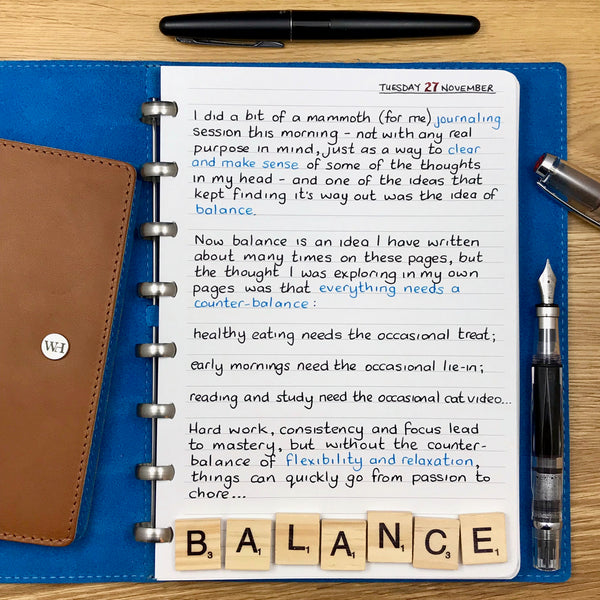 TUESDAY 27 NOVEMBER
I did a bit of a mammoth (for me) journaling
session this morning - not with any real
purpose in mind, just as a way to clear
and make sense of some of the thoughts
in my head - and one of the ideas that
kept finding it's way out was the idea of
balance.
Now balance is an idea I have written
about many times on these pages, but
the thought I was exploring in my own
pages was that everything needs a
counter-balance:
healthy eating needs the occasional treat;
early mornings need the occasional lie-in;
reading and study need the occasional cat video...
Hard work, consistency and focus lead
to mastery, but without the counter-
balance of flexibility and relaxation,
things can quickly go from passion to
chore...
WH
B3 A1 L1 A1 N1 C3 E1